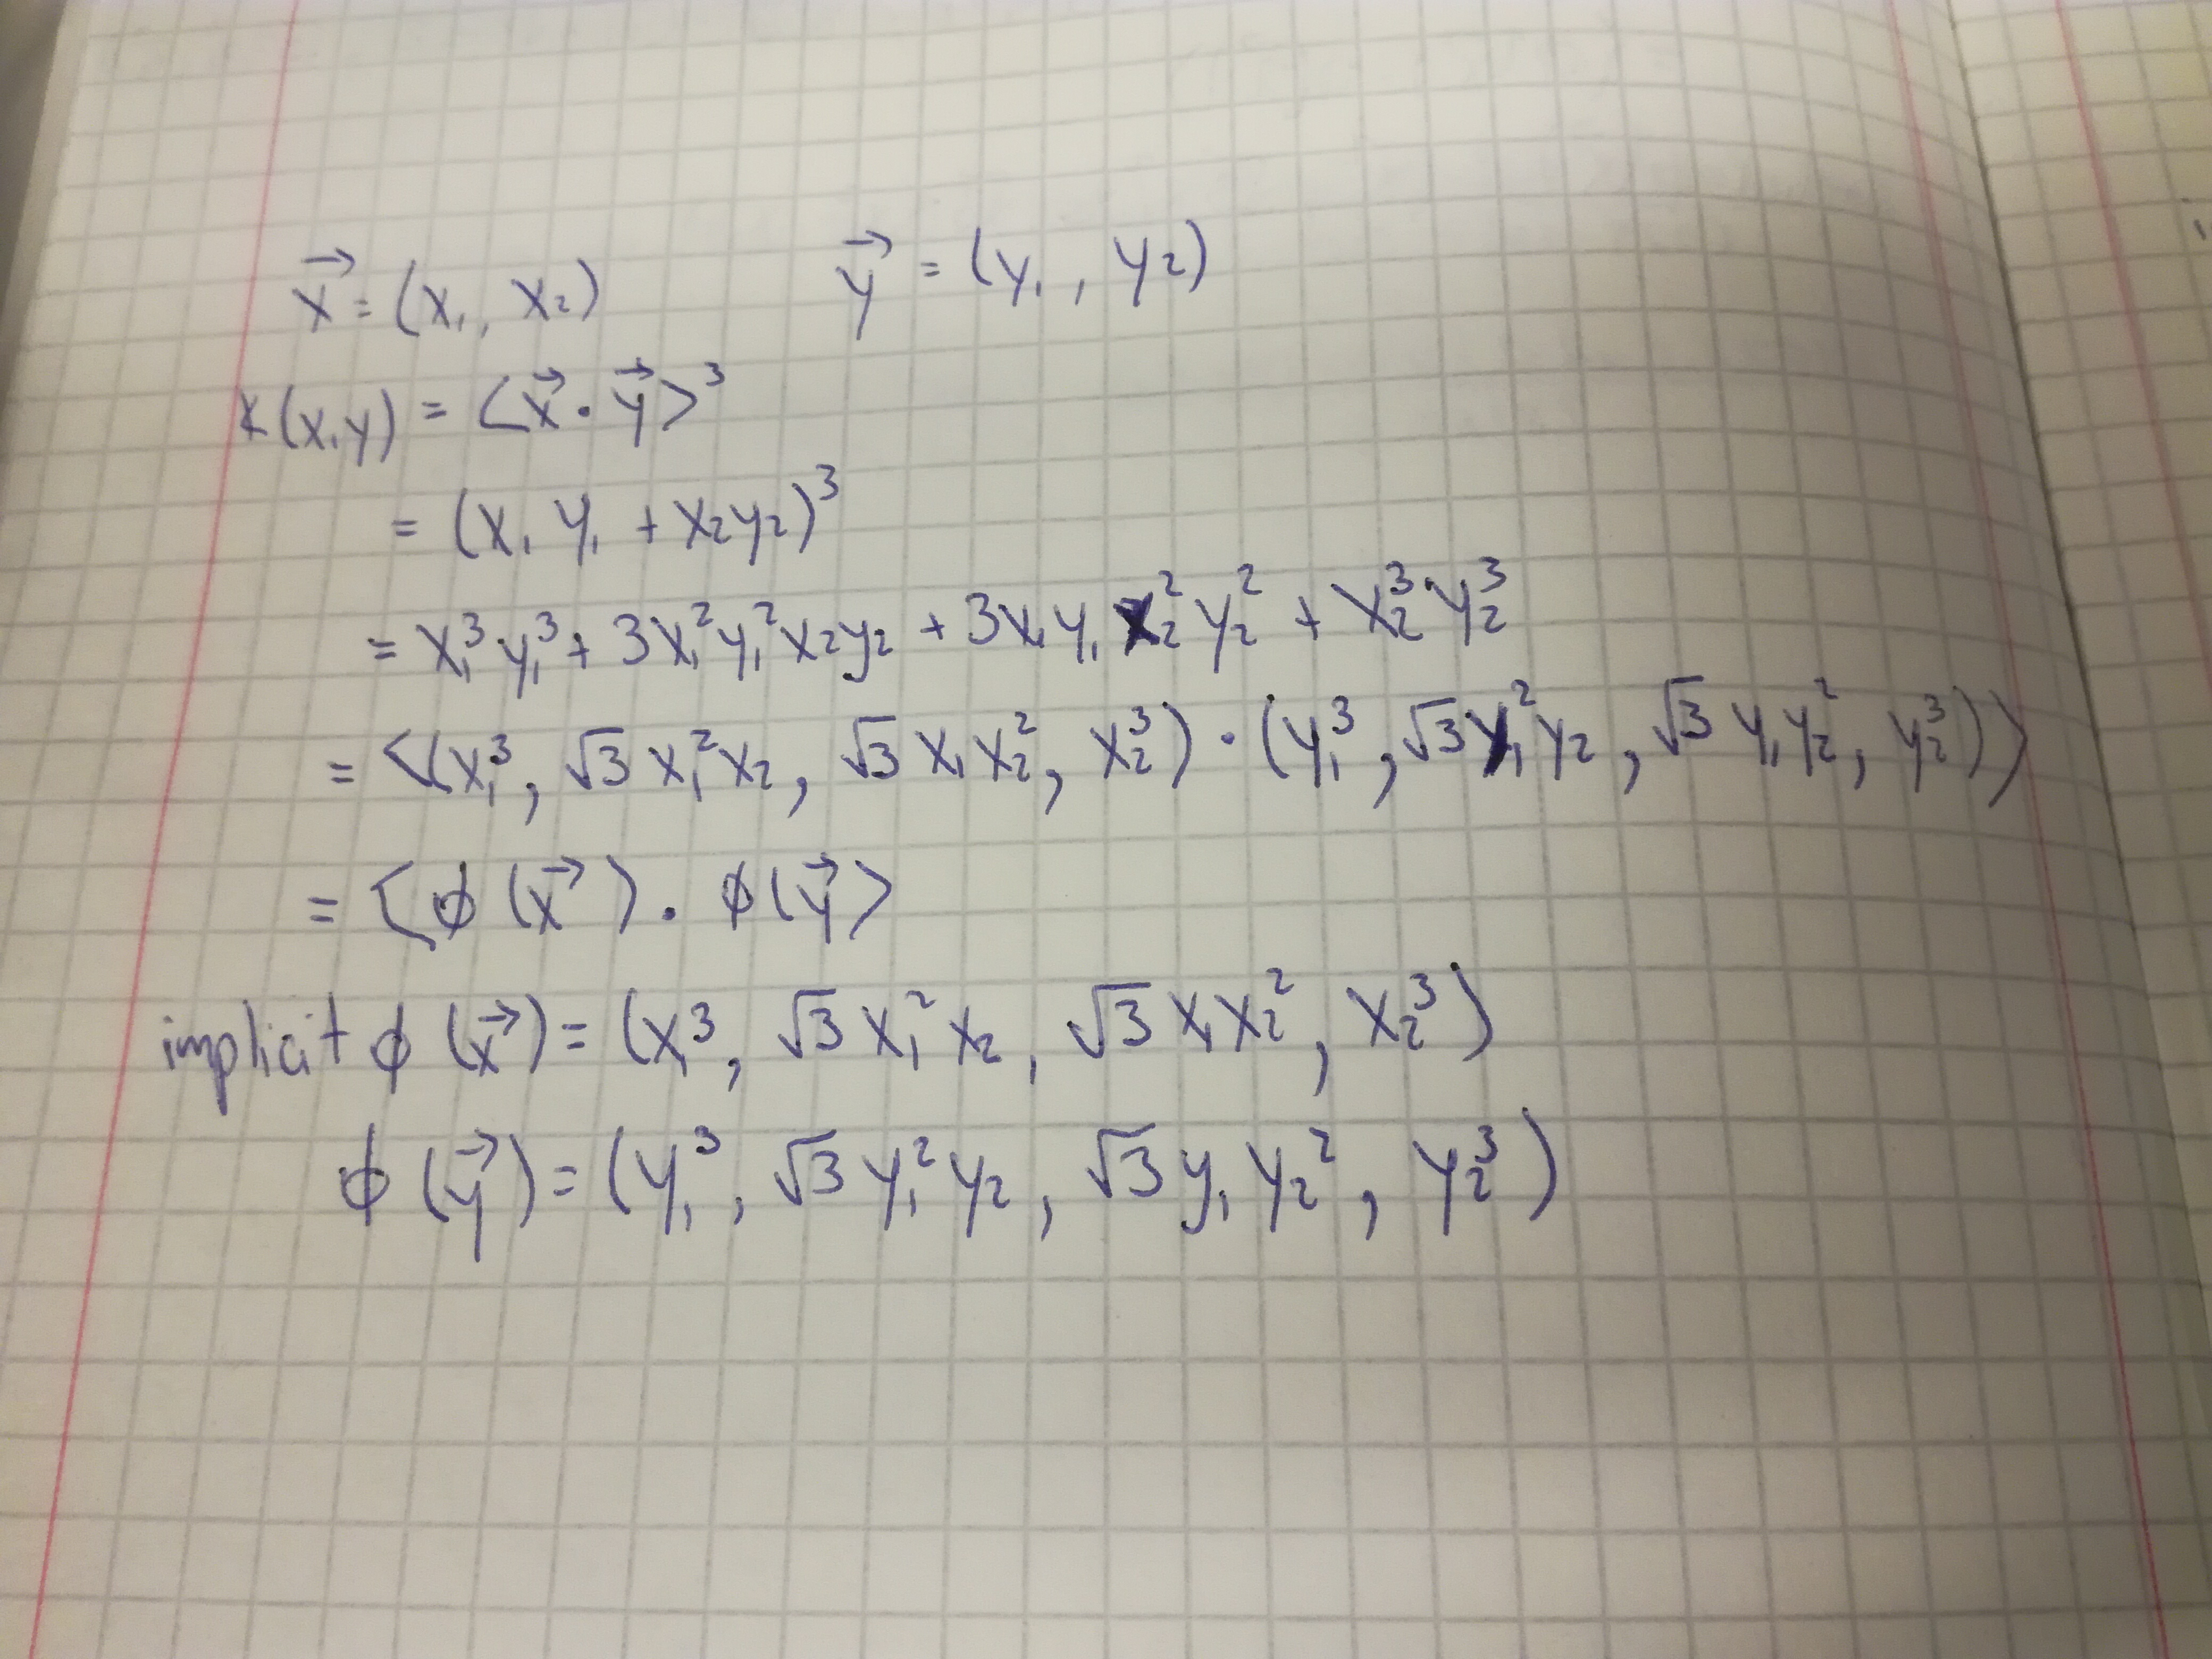 x⃗ = (x₁, x₂) y⃗ = (y₁, y₂)
K(x,y) = <x⃗ · y⃗>³
= (x₁ y₁ + x₂y₂)³
= x₁³ y₁³ + 3x₁²y₁²x₂y₂ + 3x₁y₁ x₂² y₂² + x₂³ y₂³
= <(x₁³, √3 x₁²x₂, √3 x₁x₂², x₂³) · (y₁³, √3y₁²y₂, √3 y₁y₂², y₂³)>
= <ϕ(x⃗) · ϕ(y⃗>
implicit ϕ(x⃗) = (x₁³, √3 x₁² x₂, √3 x₁x₂², x₂³)
ϕ(y⃗) = (y₁³, √3 y₁² y₂, √3 y₁ y₂², y₂³)